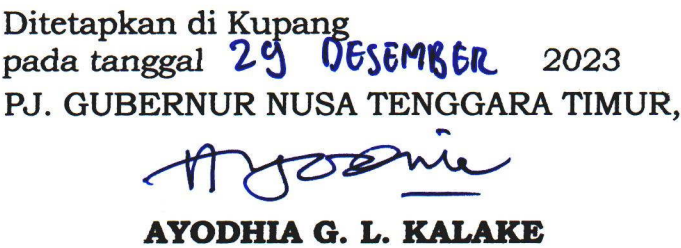 Ditetapkan di Kupang
pada tanggal 29 DESEMBER 2023
PJ. GUBERNUR NUSA TENGGARA TIMUR,
Ayodhia
AYODHIA G. L. KALAKE